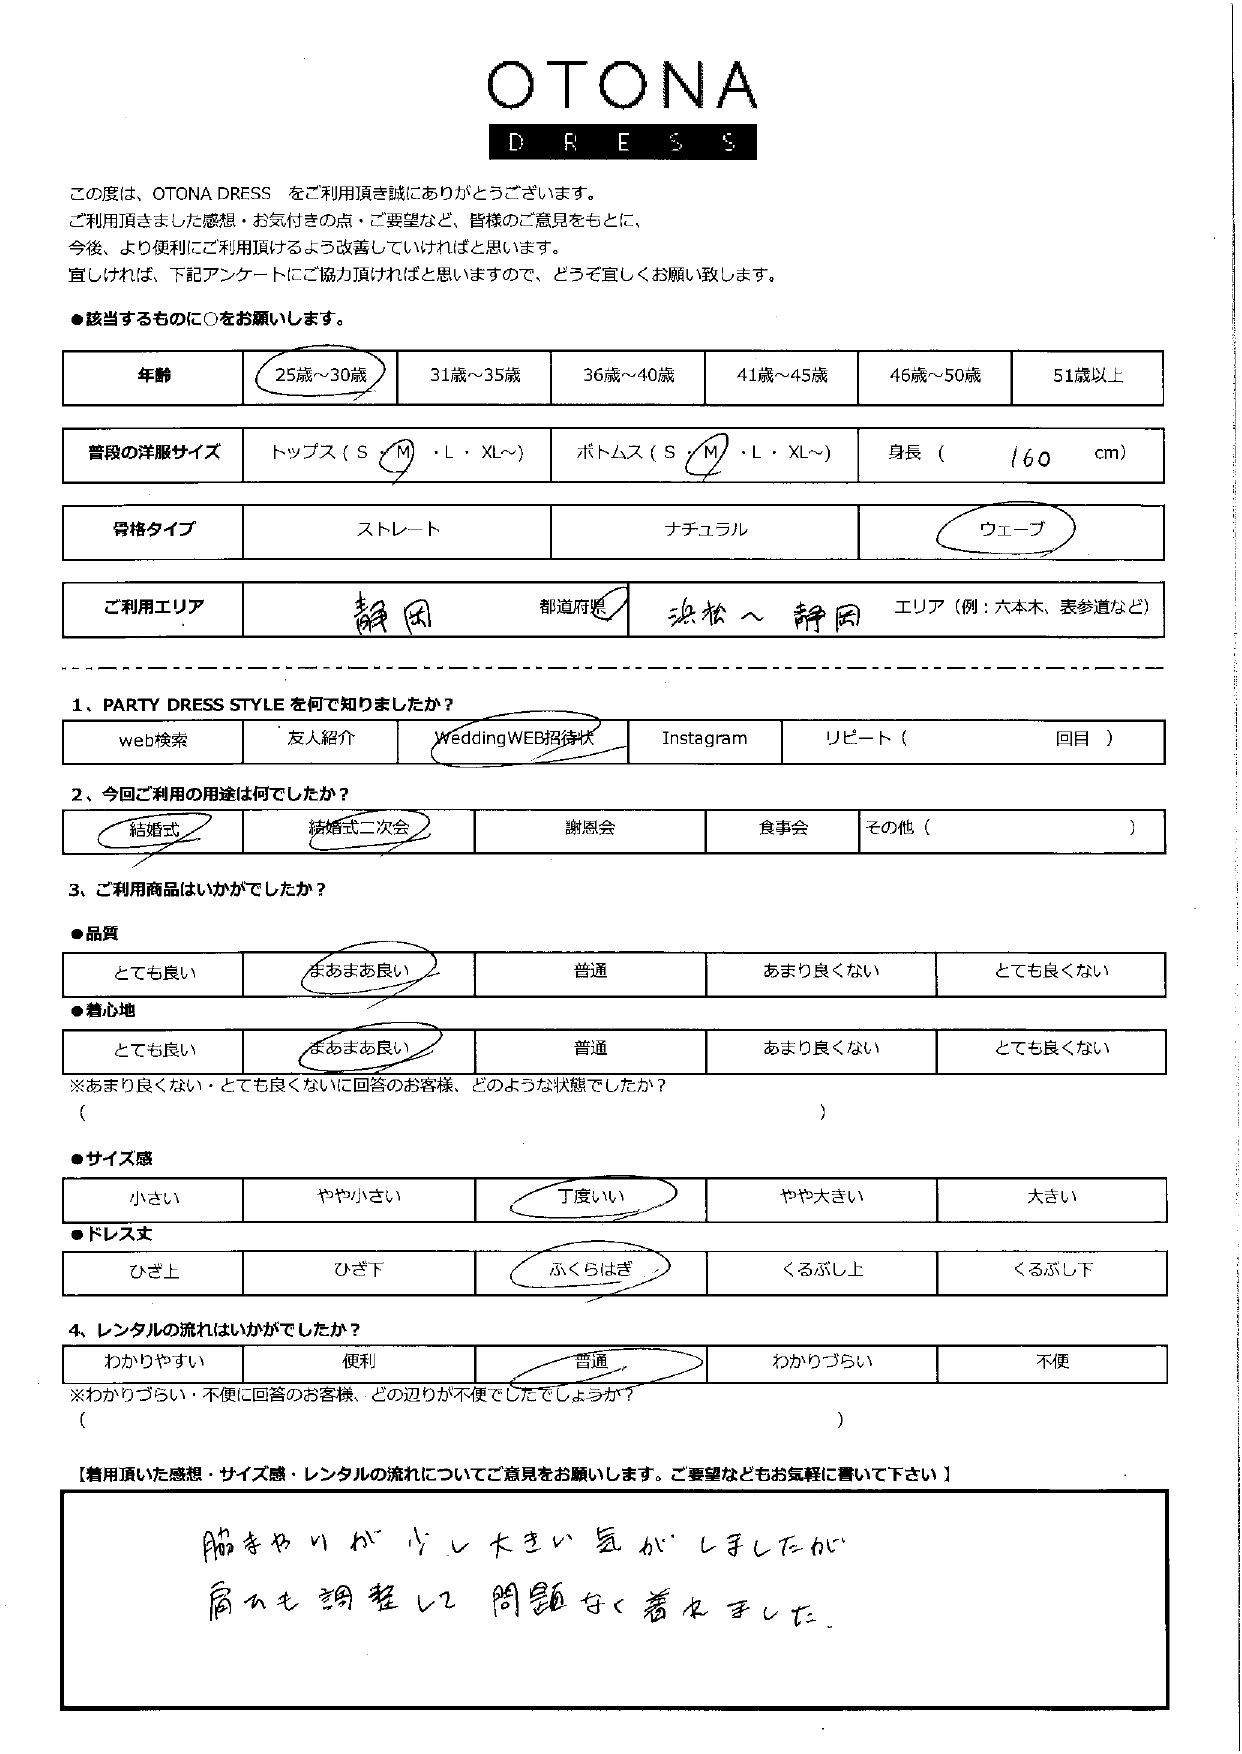 OTONA
DRESS
この度は、OTONA DRESS　をご利用頂き誠にありがとうございます。
ご利用頂きました感想・お気付きの点・ご要望など、皆様のご意見をもとに、
今後、より便利にご利用頂けるよう改善していければと思います。
宜しければ、下記アンケートにご協力頂ければと思いますので、どうぞ宜しくお願い致します。
●該当するものに○をお願いします。
年齢 25歳～30歳 31歳～35歳 36歳～40歳 41歳～45歳 46歳～50歳 51歳以上
普段の洋服サイズ トップス ( S ・ M ・L ・ XL～) ボトムス ( S ・ M ・L ・ XL～) 身長 ( 160 cm)
骨格タイプ ストレート ナチュラル ウェーブ
ご利用エリア 静岡 都道府県 浜松～静岡 エリア（例：六本木、表参道など）
1、PARTY DRESS STYLE を何で知りましたか？
web検索 友人紹介 WeddingWEB招待状 Instagram リピート（ 回目 ）
2、今回ご利用の用途は何でしたか？
結婚式 結婚式二次会 謝恩会 食事会 その他（ ）
3、ご利用商品はいかがでしたか？
●品質
とても良い まあまあ良い 普通 あまり良くない とても良くない
●着心地
とても良い まあまあ良い 普通 あまり良くない とても良くない
※あまり良くない・とても良くないに回答のお客様、どのような状態でしたか？
（ ）
●サイズ感
小さい やや小さい 丁度いい やや大きい 大きい
●ドレス丈
ひざ上 ひざ下 ふくらはぎ くるぶし上 くるぶし下
4、レンタルの流れはいかがでしたか？
わかりやすい 便利 普通 わかりづらい 不便
※わかりづらい・不便に回答のお客様、どの辺りが不便でしたでしょうか？
（ ）
【着用頂いた感想・サイズ感・レンタルの流れについてご意見をお願いします。ご要望などもお気軽に書いて下さい 】
脇まわりが少し大きい気がしましたが
肩ひも調整して問題なく着れました。